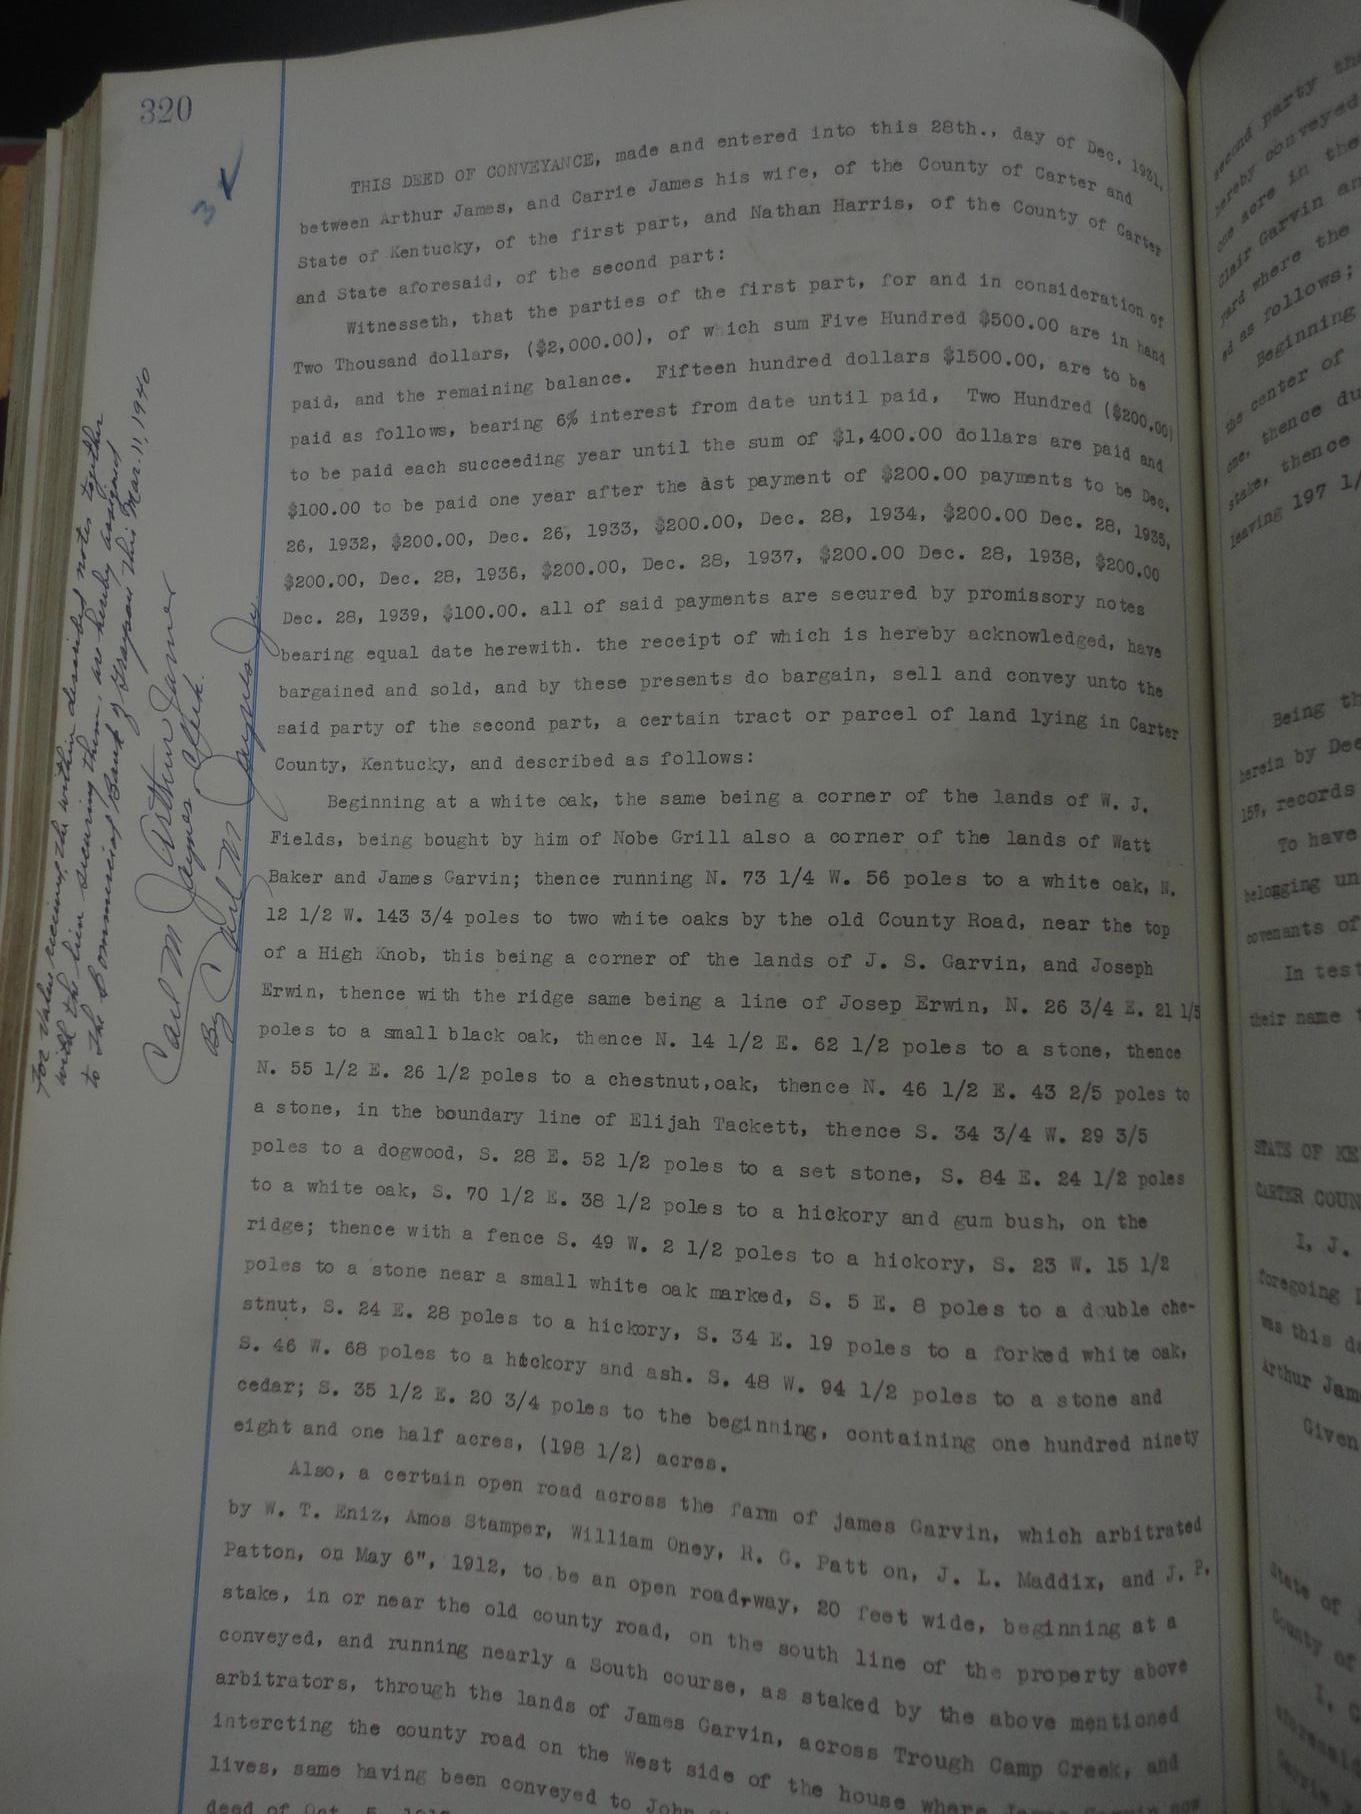 320
3
THIS DEED OF CONVEYANCE, made and entered into this 28th., day of Dec, 1931,
between Arthur James, and Carrie James his wife, of the County of Carter and
State of Kentucky, of the first part, and Nathan Harris, of the County of Carter
and State aforesaid, of the second part:
Witnesseth, that the parties of the first part, for and in consideration of
Two Thousand dollars, ($2,000.00), of which sum Five Hundred $500.00 are in hand
paid, and the remaining balance. Fifteen hundred dollars $1500.00, are to be
paid as follows, bearing 6% interest from date until paid, Two Hundred ($200.00)
to be paid each succeeding year until the sum of $1,400.00 dollars are paid and
$100.00 to be paid one year after the last payment of $200.00 payments to be Dec.
26, 1932, $200.00, Dec. 26, 1933, $200.00, Dec. 28, 1934, $200.00 Dec. 28, 1935,
$200.00, Dec. 28, 1936, $200.00, Dec. 28, 1937, $200.00 Dec. 28, 1938, $200.00
Dec. 28, 1939, $100.00. all of said payments are secured by promissory notes
bearing equal date herewith. the receipt of which is hereby acknowledged, have
bargained and sold, and by these presents do bargain, sell and convey unto the
said party of the second part, a certain tract or parcel of land lying in Carter
County, Kentucky, and described as follows:
Beginning at a white oak, the same being a corner of the lands of W. J.
Fields, being bought by him of Nobe Grill also a corner of the lands of Watt
Baker and James Garvin; thence running N. 73 1/4 W. 56 poles to a white oak, N.
12 1/2 W. 143 3/4 poles to two white oaks by the old County Road, near the top
of a High Knob, this being a corner of the lands of J. S. Garvin, and Joseph
Erwin, thence with the ridge same being a line of Josep Erwin, N. 26 3/4 E. 21 1/5
poles to a small black oak, thence N. 14 1/2 E. 62 1/2 poles to a stone, thence
N. 55 1/2 E. 26 1/2 poles to a chestnut,oak, thence N. 46 1/2 E. 43 2/5 poles to
a stone, in the boundary line of Elijah Tackett, thence S. 34 3/4 W. 29 3/5
poles to a dogwood, S. 28 E. 52 1/2 poles to a set stone, S. 84 E. 24 1/2 poles
to a white oak, S. 70 1/2 E. 38 1/2 poles to a hickory and gum bush, on the
ridge; thence with a fence S. 49 W. 2 1/2 poles to a hickory, S. 23 W. 15 1/2
poles to a stone near a small white oak marked, S. 5 E. 8 poles to a double che-
stnut, S. 24 E. 28 poles to a hickory, S. 34 E. 19 poles to a forked white oak,
S. 46 W. 68 poles to a hickory and ash. S. 48 W. 94 1/2 poles to a stone and
cedar; S. 35 1/2 E. 20 3/4 poles to the beginning, containing one hundred ninety
eight and one half acres, (198 1/2) acres.
Also, a certain open road across the farm of james Garvin, which arbitrated
by W. T. Eniz, Amos Stamper, William Oney, R. G. Patt on, J. L. Maddix, and J. P.
Patton, on May 6", 1912, to be an open road-way, 20 feet wide, beginning at a
stake, in or near the old county road, on the south line of the property above
conveyed, and running nearly a South course, as staked by the above mentioned
arbitrators, through the lands of James Garvin, across Trough Camp Creek, and
intercting the county road on the West side of the house where James Garvin now
lives, same having been conveyed to John
deed of Oct. 5,
For value received the within described notes together
with the lien securing them, are hereby assigned
to The Commercial Bank of Grayson this Mar. 11, 1940
Arthur James
Carl M Jaynes Clerk.
By Carl M Jaynes Jy.
second party
hereby conveyed
one acre in the
Clair Garvin an
yard where the
ed as follows;
Beginning
the center of
one, thence du
stake, thence
leaving 197 1/
Being th
herein by Dee
157, records
To have
belonging un
covenants of
In test
their name
STATE OF KE
CARTER COUN
I, J.
foregoing
was this da
Arthur Jam
Given
State of
County of
I, C